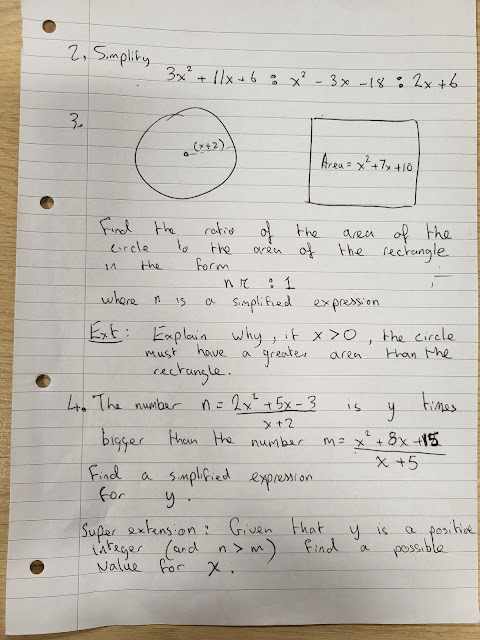 2. Simplify
3x² + 11x + 6 : x² - 3x - 18 : 2x + 6
3.
(x+2)
Area = x² + 7x + 10
Find the ratio of the area of the
circle to the area of the rectangle
in the form
nπ : 1
where n is a simplified expression
Ext: Explain why, if x > 0, the circle
must have a greater area than the
rectangle.
4. The number n = 2x² + 5x - 3 is y times
x + 2
bigger than the number m = x² + 8x + 15
x + 5
Find a simplified expression
for y.
Super extension: Given that y is a positive
integer (and n > m) find a possible
value for x.